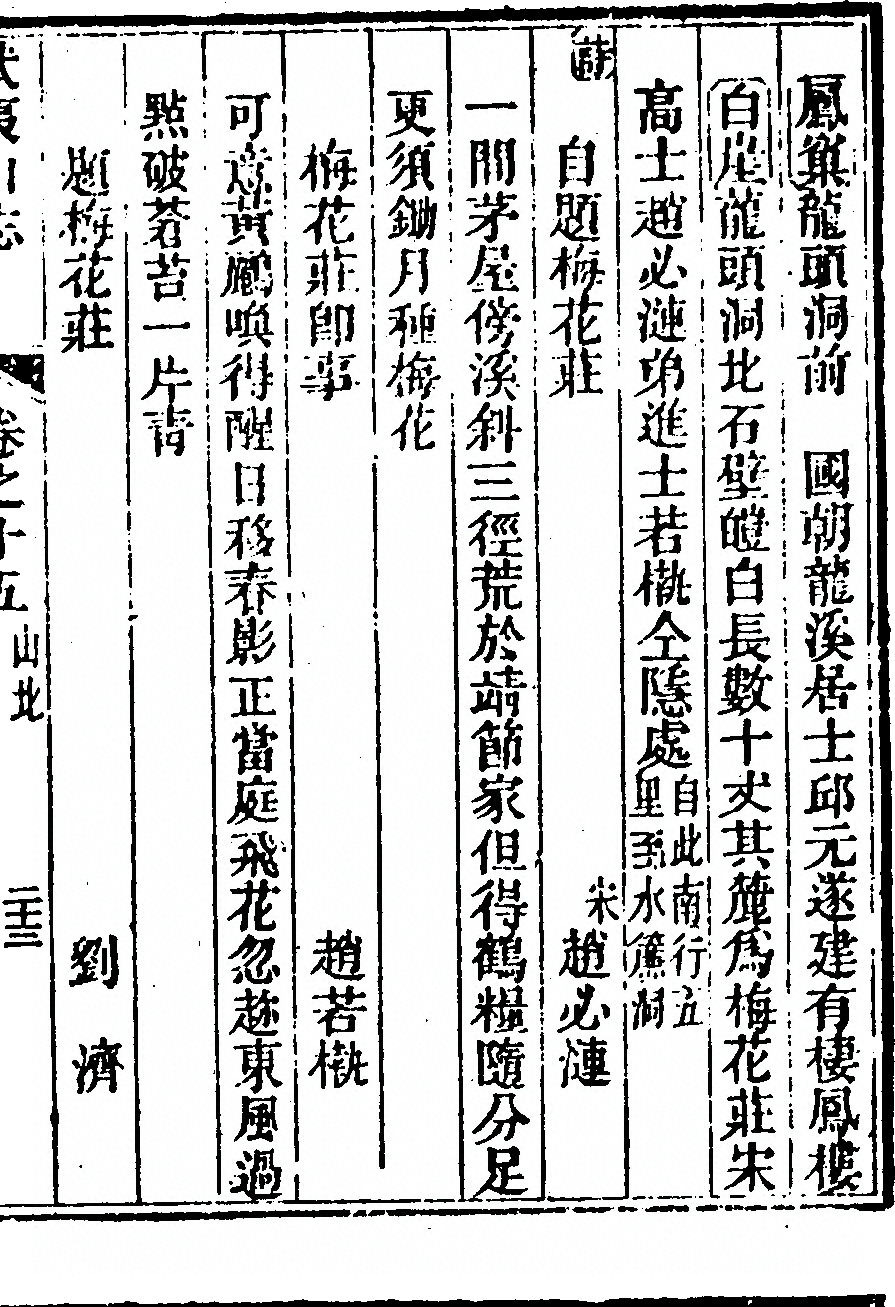 鳳巢龍頭洞前　國朝龍溪居士邱元遂建有棲鳳樓
白崖龍頭洞北石壁皚白長數十丈其麓爲梅花莊宋
高士趙必漣弟進士若槸仝隱處自此南行五里至水簾洞
自題梅花莊　宋趙必漣
一間茅屋傍溪斜三徑荒於靖節家但得鶴糧隨分足
更須鋤月種梅花
梅花莊卽事　趙若槸
可意黃鸝喚得醒日移春影正當庭飛花忽趂東風過
點破蒼苔一片靑
題梅花莊　劉濟
武夷山志　卷之十五　山北　二十三